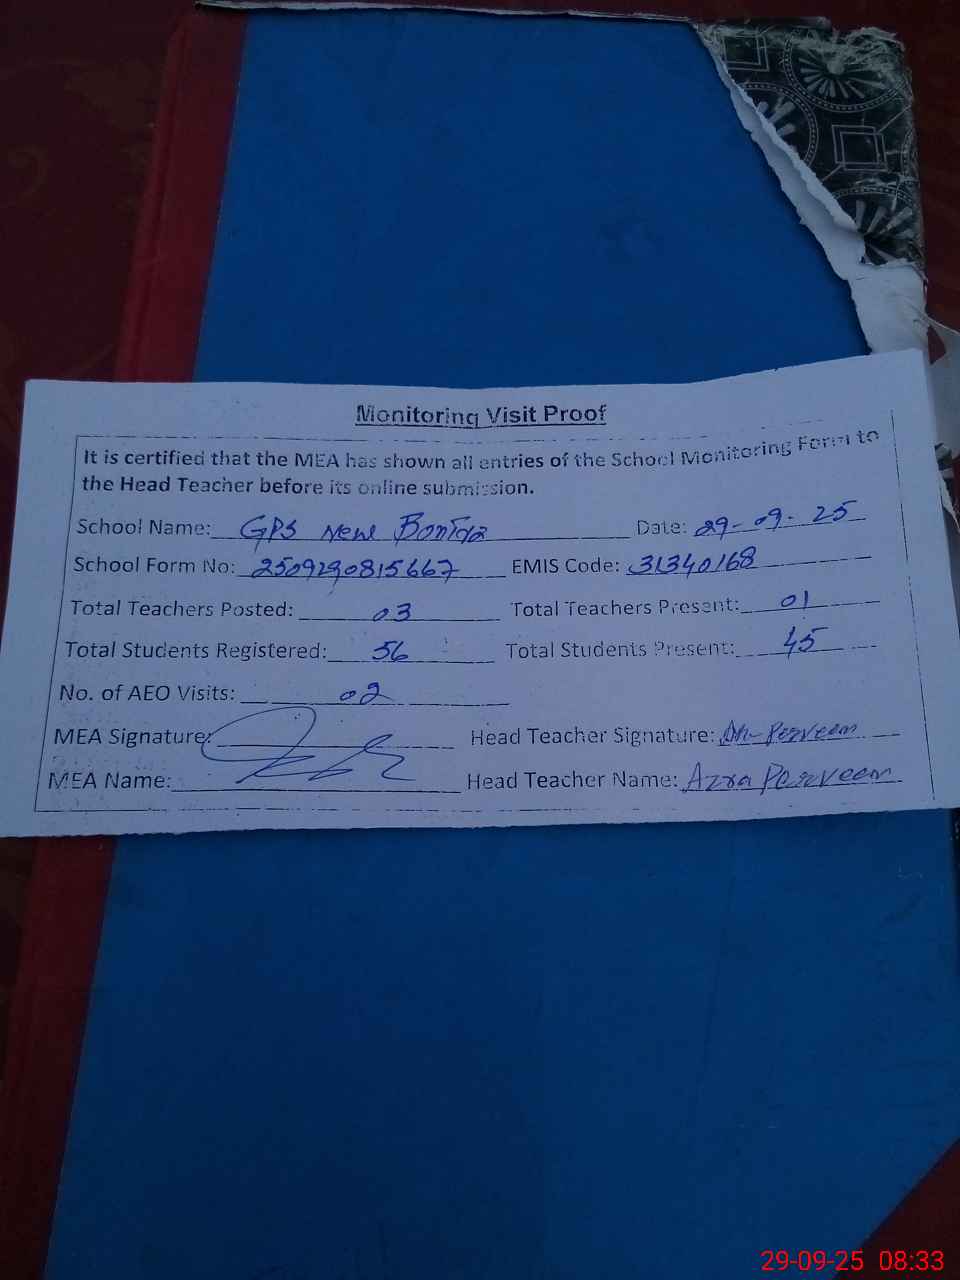 Monitoring Visit Proof
It is certified that the MEA has shown all entries of the School Monitoring Form to
the Head Teacher before its online submission.
School Name: GPS New Date: 29-09-25
School Form No: 2509290815667 EMIS Code: 31340168
Total Teachers Posted: 03 Total Teachers Present: 01
Total Students Registered: 56 Total Students Present: 45
No. of AEO Visits: 02
MEA Signature: Head Teacher Signature: Perveen
MEA Name: Head Teacher Name: Azra Perveen
29-09-25 08:33